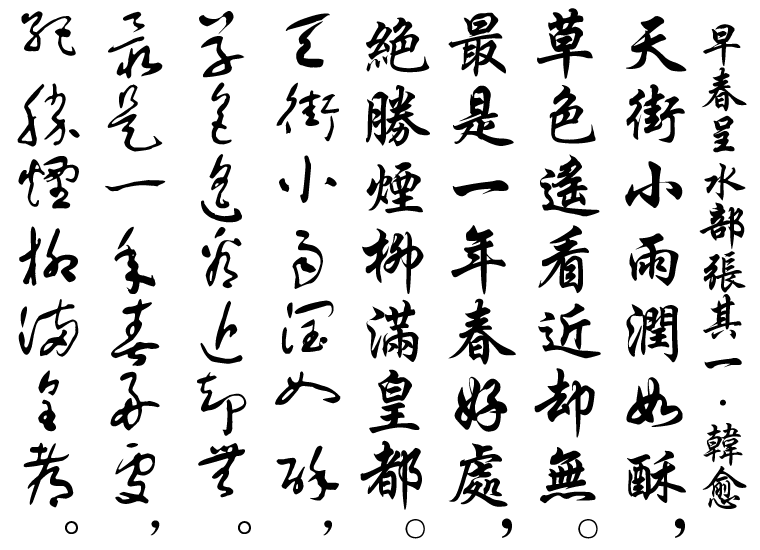 早春呈水部張其一・韓愈
天街小雨潤如酥，
草色遙看近却無。
最是一年春好處，
絕勝煙柳滿皇都。
天街小雨潤如酥，
草色遙看近却無。
最是一年春好處，
絕勝煙柳滿皇都。